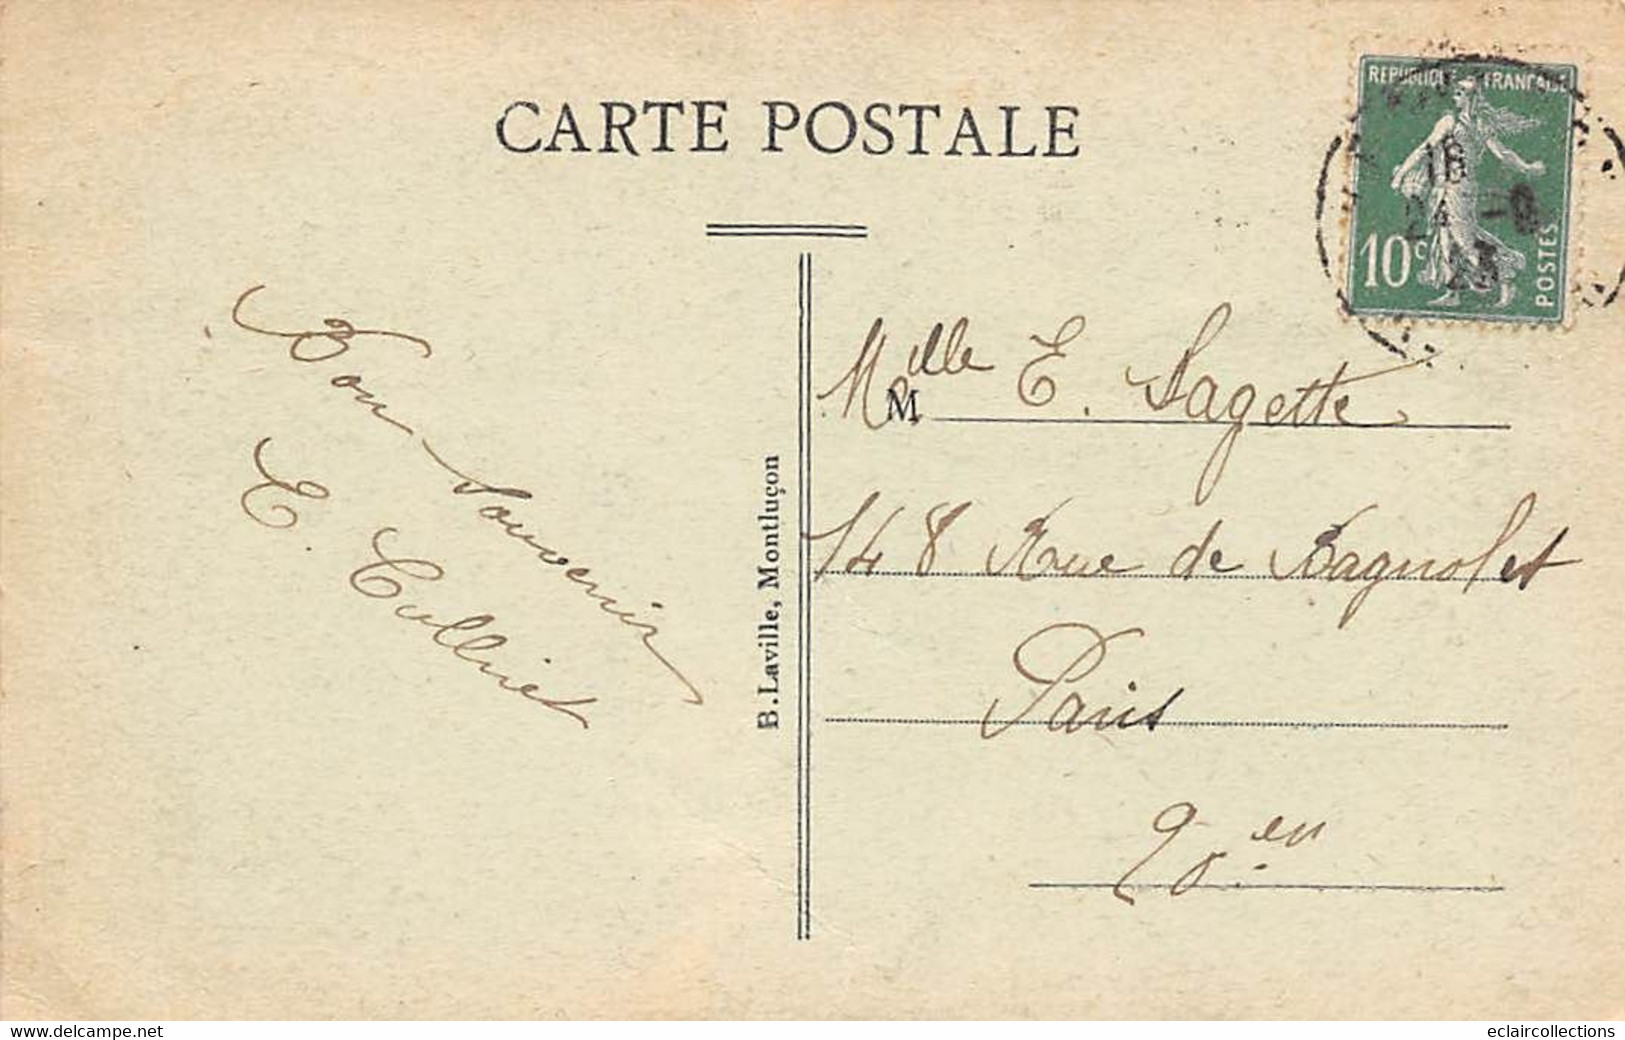 CARTE POSTALE
REPUBLIQUE FRANÇAISE
10c
POSTES
18
24 -9
23
Bon souvenir
E. Culliet
B. Laville, Montluçon
M
Melle E. Sagette
148 Rue de Bagnolet
Paris
en
www.delcampe.net
eclaircollections